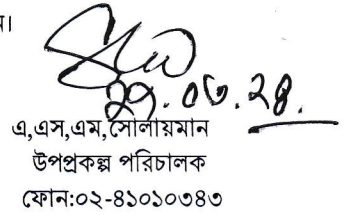 ন।
২১.০৩.২৪.
এ,এস,এম,সোলায়মান
উপপ্রকল্প পরিচালক
ফোন:০২-৪১০১০৩৪৩